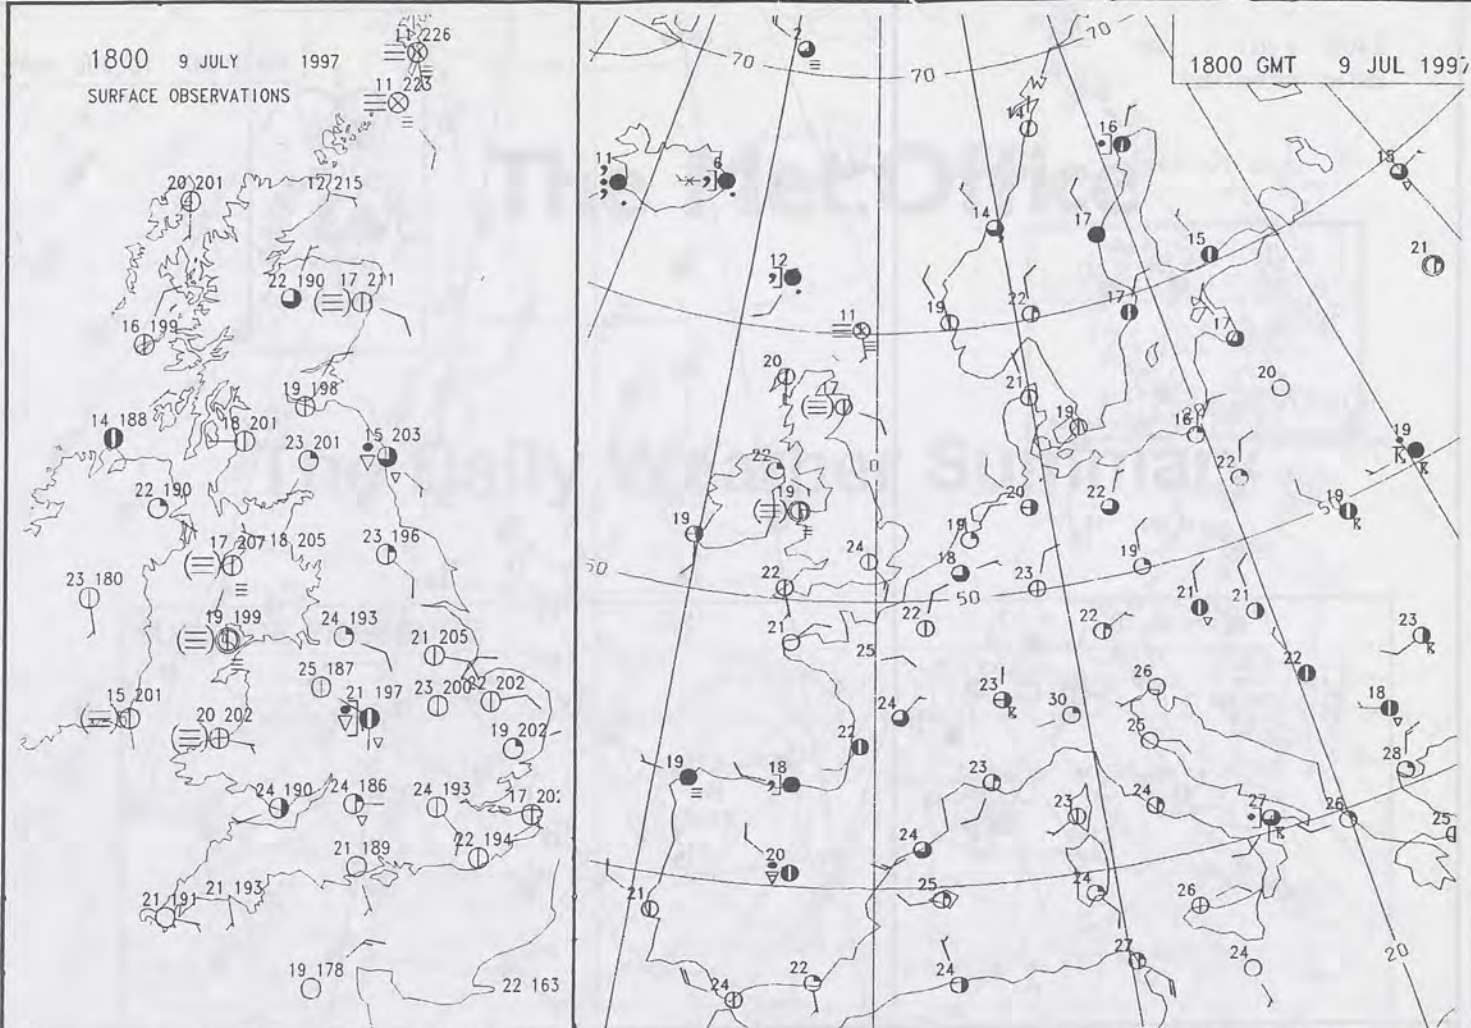 1800 9 JULY 1997
SURFACE OBSERVATIONS
11 226
11 223
20 201
12 215
22 190
17 211
16 199
19 198
14 188
18 201
23 201
15 203
22 190
17 207
18 205
23 196
23 180
19 199
24 193
21 205
25 187
21 197
23 200
22 202
15 201
20 202
19 202
24 190
24 186
24 193
17 202
22 194
21 189
21 193
21 191
19 178
22 163
1800 GMT 9 JUL 1997
2
70
70
70
14
16
11
6
15
14
17
15
21
12
19
22
17
17
11
20
20
17
21
19
16
19
22
0
22
19
20
22
19
50
19
19
24
18
19
50
22
23
50
21
21
22
22
23
21
25
22
26
23
30
18
24
25
22
28
19
18
23
24
27
26
23
25
24
20
24
21
25
26
27
24
20
22
24
24
The Met Office
The Daily Weather Summary